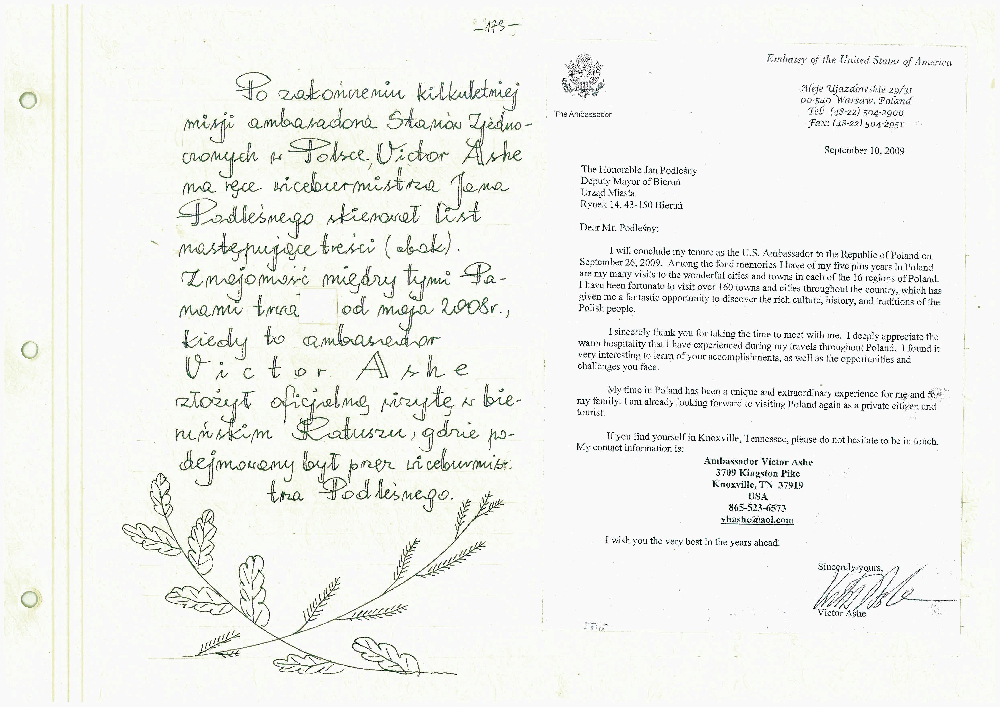 - 173 -
Po zakończeniu kilkuletniej
misji ambasadora Stanów Zjedno-
czonych w Polsce, Victor Ashe
na ręce wiceburmistrza Jana
Podleśnego skierował list
następującej treści (obok).
Znajomość między tymi Pa-
nami trwa od maja 2008r.,
kiedy to ambasador
Victor Ashe
złożył oficjalną wizytę w bie-
ruńskim Ratuszu, gdzie po-
dejmowany był przez wiceburmist-
trza Podleśnego.
Embassy of the United States of America
The Ambassador
Aleje Ujazdowskie 29/31
00-540 Warsaw, Poland
Tel: (48-22) 504-2900
Fax: (48-22) 504-2951
September 10, 2009
The Honorable Jan Podleśny
Deputy Mayor of Bieruń
Urząd Miasta
Rynek 14, 43-150 Bieruń
Dear Mr. Podleśny:
I will conclude my tenure as the U.S. Ambassador to the Republic of Poland on
September 26, 2009. Among the fond memories I have of my five plus years in Poland
are my many visits to the wonderful cities and towns in each of the 16 regions of Poland.
I have been fortunate to visit over 160 towns and cities throughout the country, which has
given me a fantastic opportunity to discover the rich culture, history, and traditions of the
Polish people.
I sincerely thank you for taking the time to meet with me. I deeply appreciate the
warm hospitality that I have experienced during my travels throughout Poland. I found it
very interesting to learn of your accomplishments, as well as the opportunities and
challenges you face.
My time in Poland has been a unique and extraordinary experience for me and for
my family. I am already looking forward to visiting Poland again as a private citizen and
tourist.
If you find yourself in Knoxville, Tennessee, please do not hesitate to be in touch.
My contact information is:
Ambassador Victor Ashe
3709 Kingston Pike
Knoxville, TN 37919
USA
865-523-6573
vhashe@aol.com
I wish you the very best in the years ahead.
Sincerely yours,
Victor Ashe